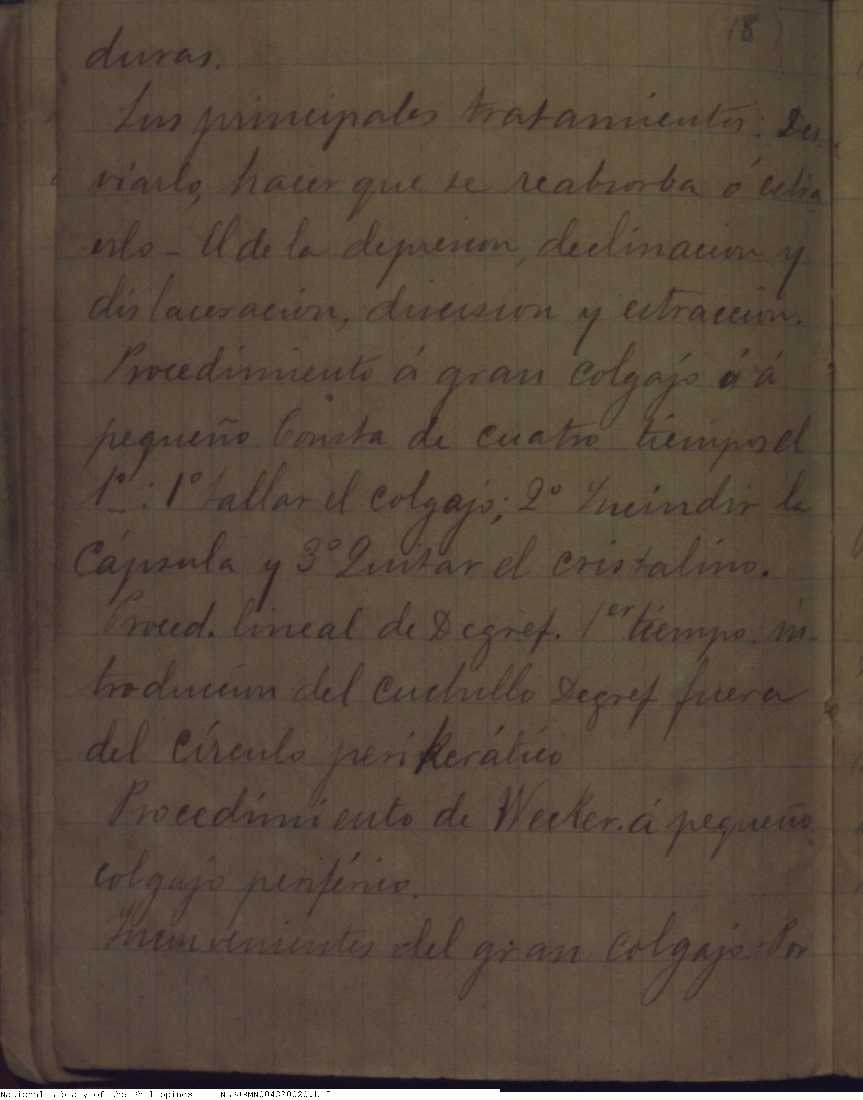 18
duras.
Los principales tratamientos: Des-
viarlo, hacer que se reabsorba ó estra
erlo - El de la depresion, declinacion y
dislaceracion, discision y estraccion.
Procedimiento á gran colgajo ó á
pequeño Consta de cuatro tiempos el
1º: 1º tallar el colgajo; 2º Incindir la
Cápsula y 3º Quitar el cristalino.
Proced. lineal de Degref. 1er tiempo: in-
troduccion del cuchillo Degref fuera
del círculo perikerático
Procedimiento de Wecker. á pequeño
colgajo periférico.
Inconvenientes del gran colgajo: Por
National Library of the Philippines